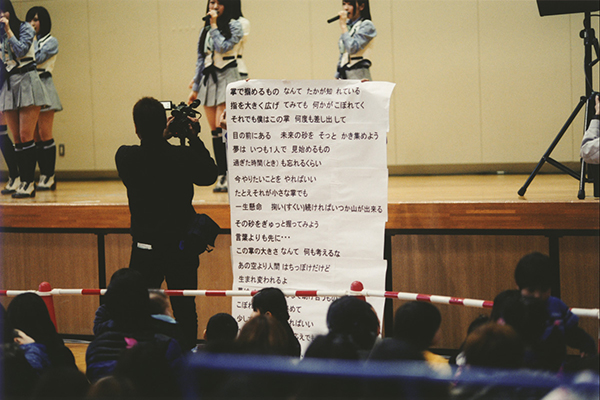 掌で掴めるもの なんて たかが知 れている
指を大きく広げ てみても 何かがこぼれてく
それでも僕はこの掌 何度も差し出して
目の前にある 未来の砂を そっと かき集めよう
夢は いつも1人で 見始めるもの
過ぎた時間(とき)も忘れるくらい
今やりたいことを やればいい
たとえそれが小さな掌でも
一生懸命 掬い(すくい)続ければいつか山が出来る
その砂をぎゅっと握ってみよう
言葉よりも先に・・・
この掌の大きさ なんて 何も考えるな
あの空より人間 はちっぽけだけど
生まれ変われるよ